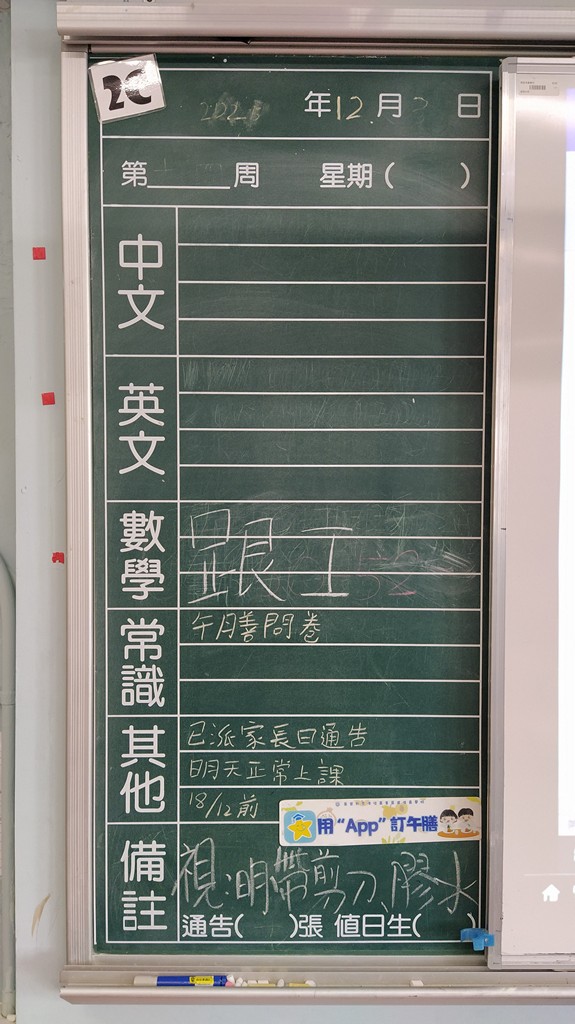 2C
年12月 日
第 周 星期( )
中文
英文
數學 跟工
常識 午膳問卷
其他 已派家長日通告
明天正常上課
18/12前 用“App”訂午膳
備註 視:明帶剪刀、膠水
通告( )張 值日生( )